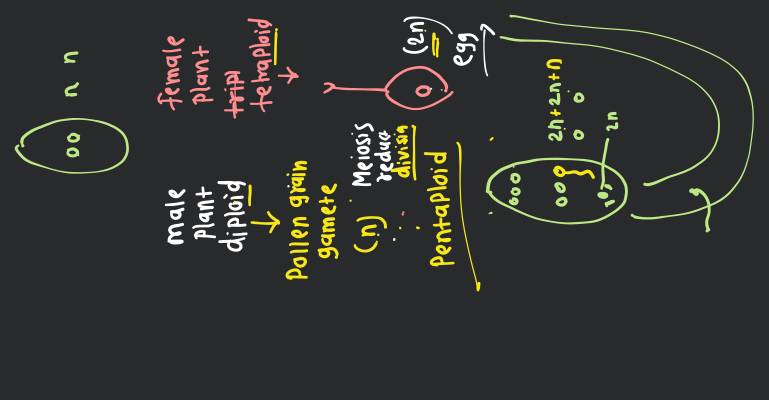 n n
female
plant
tripl
tetraploid
male
plant
diploid
Pollen grain
gamete
(n)
Meiosis
reduc
division
Pentaploid
(2n)
egg
2n+2n+n
2n